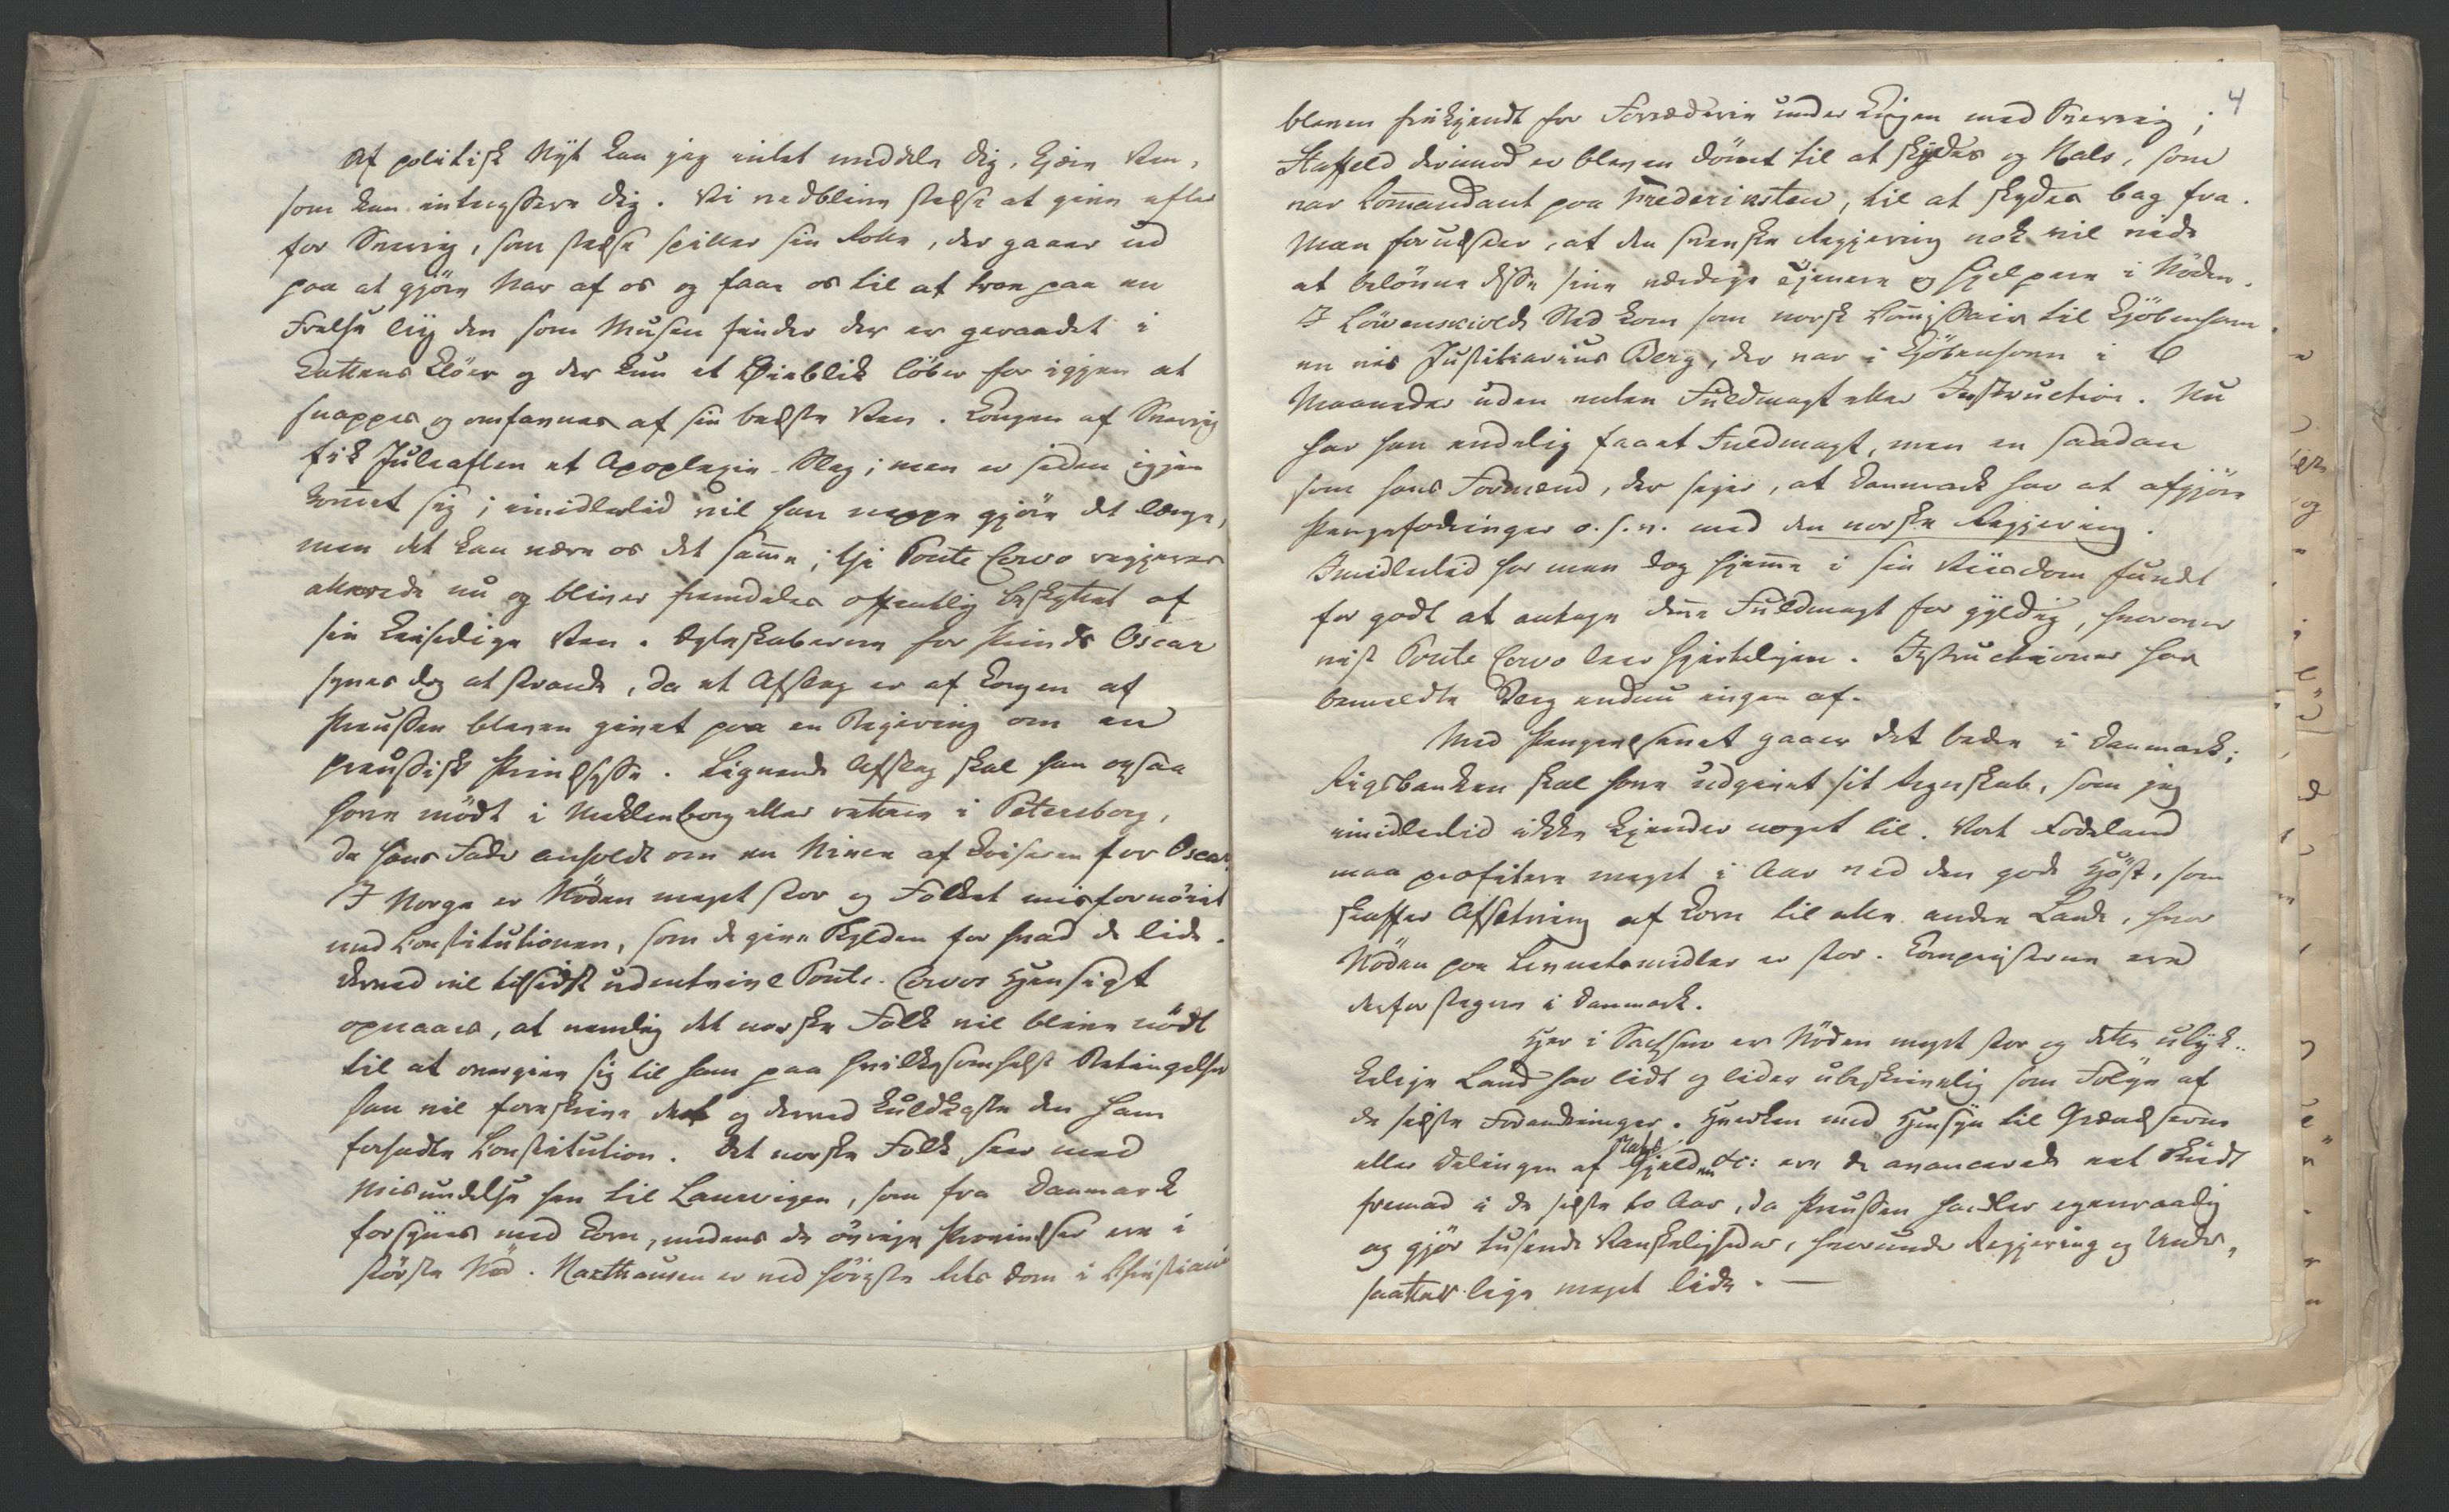 Af politisk Nyt kan jeg intet meddele Dig, kjære Ven,
som kan interessere Dig. Vi vedblive stedse at give efter
for Sverrig, som stedse spiller sin Rolle, der gaaer ud
paa at gjøre Nar af os og faae os til at troe paa en
Frelse liig den som Musen finder der er geraadet i
Kattens Klöer og der kun et Øieblik löber for igjen at
snappes og omfavnes af sin bedste Ven. Kongen af Sverrig
fik Juleaften et Apoplexie-Slag; men er siden igjen
kom̄et sig; imidlertid vil han neppe gjöre det længe,
men det kan være os det sam̄e; thi Ponte Corvo regjerer
allerede nu og bliver fremdeles offentlig beskyttet af
sin keiserlige Ven. Ægteskaberne for Prinds Oscar
synes dog at strande, da et Afslag er af Kongen af
Preussen bleven givet paa en Begiering om en
preussisk Prindsesse. Lignende Afslag skal han ogsaa
have mödt i Meklenborg eller rettere i Petersborg,
da hans Fader anholdt om en Niece af Keiseren for Oscar.
I Norge er Nöden meget stor og Folket misfornöiet
med Constitutionen, som de give Skylden for hvad de lide.
Derved vil tilsidst udentvivl Ponte-Corvos Hensigt
opnaaes, at nemlig det norske Folk vil blive nödt
til at overgive sig til ham paa hvilkesomhelst Betingelser
han vil foreskrive det og derved kuldkaste den ham
forhadte Constitution. Det norske Folk seer med
Misundelse hen til Laurvigen, som fra Danmark
forsynes med Korn, medens de övrige Provindser ere i
störste Nöd. Haxthausen er ved höieste Rets Dom i Christiania
4
bleven frikjendt for Forræderie under Krigen med Sverrig;
Staffeld derimod er bleven dömt til at skydes og Hals, som
var Com̄andant paa Fredericksteen, til at skydes bag fra.
Man forudseer, at den svenske Regjering nok vil vide
at belönne disse sine værdige Tjenere og Hjelpere i Nöden.
I Löwenskiolds Sted kom som norsk Com̄issair til Kjöbenhavn
en vis Justitiarius Berg, der var i Kjöbenhavn i 6
Maaneder uden enten Fuldmagt eller Instruction. Nu
har han endelig faaet Fuldmagt, men en saadan
som hans Formænd, der siger, at Danmark har at afgjöre
Pengefodringer o. s. v. med den norske Regjering.
Imidlertid har man dog hjem̄e i sin Viisdom fundet
for godt at antage den̄e Fuldmagt for gyldig, hvorover
vist Ponte Corvo leer hjerteligen. Instructioner har
bemeldte Berg endnu ingen af.
Med Pengevæsenet gaaer det bedre i Danmark;
Rigsbanken skal have udgivet sit Regnskab, som jeg
imidlertid ikke kjender noget til. Vort Födeland
maa profitere meget i Aar ved den gode Höst, som
skaffer Afsætning af Korn til alle andre Lande, hvor
Nöden paa Levnetsmidler er stor. Kornpriserne ere
derfor stegne i Danmark.
Her i Sachsen er Nöden meget stor og dette ulyk-
kelige Land har lidt og lider ubeskrivelig som Fölge af
de sidste Forandringer. Hverken med Hensyn til Grændserne
eller Delingen af Stats Gjelden &c: ere de avancerede eet Skridt
fremad i de sidste to Aar, da Preussen handler egenraadig
og gjör tusende Vanskeligheder, hvorunder Regjering og Under-
saatter lige meget lide. —